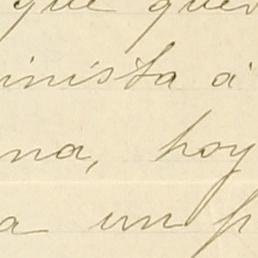 que que
inista á
na, hoy
a un p